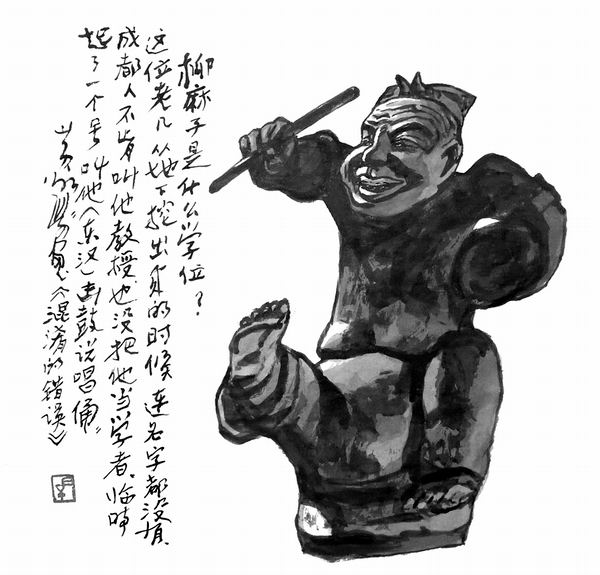 柳麻子是什么学位？
这位老几从地下挖出来的时候连名字都没有
成都人不肯叫他教授也没把他当学者、临时
起了一个号叫他《东汉》击鼓说唱俑”
《混淆的错误》